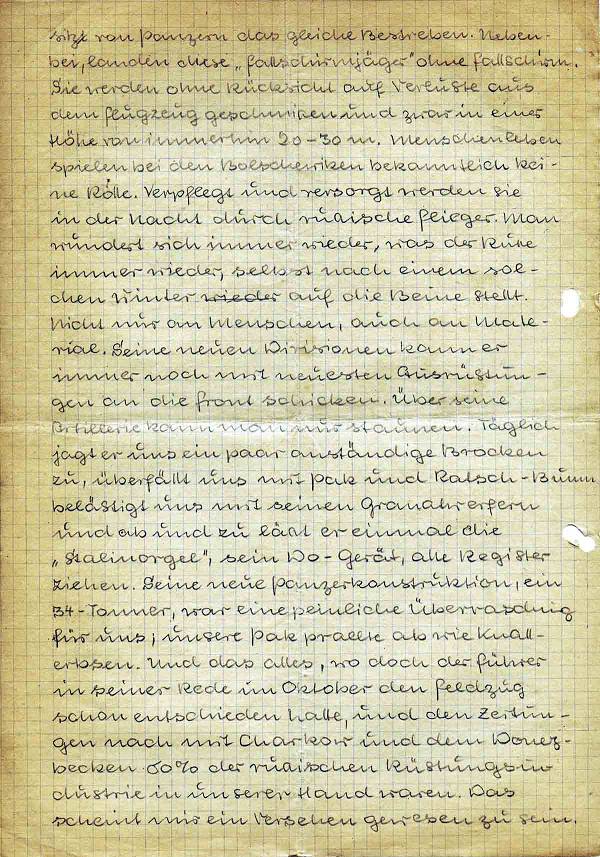 sitzt von Panzern das gleiche Bestreben. Neben-
bei, landen diese „Fallschirmjäger" ohne Fallschirm.
Sie werden ohne Rücksicht auf Verluste aus
dem Flugzeug geschmissen und zwar in einer
Höhe von immerhin 20-30 m. Menschenleben
spielen bei den Bolschewiken bekanntlich kei-
ne Rolle. Verpflegt und versorgt werden sie
in der Nacht durch rußische Flieger. Man
wundert sich immer wieder, was der Ruße
immer wieder, selbst nach einem sol-
chen Winter wieder auf die Beine stellt.
Nicht nur an Menschen, auch an Mate-
rial. Seine neuen Divisionen kann er
immer noch mit neuesten Ausrüstun-
gen an die Front schicken. Über seine
Artillerie kann man nur staunen. Täglich
jagt er uns ein paar anständige Brocken
zu, überfällt uns mit Pak und Ratsch-Bumm
belästigt uns mit seinen Granatwerfern
und ab und zu läßt er einmal die
„Stalinorgel", sein Do-Gerät, alle Register
ziehen. Seine neue Panzerkonstruktion, ein
34-Tonner, war eine peinliche Überraschung
für uns; unsere Pak prallte ab wie Knall-
erbsen. Und das alles, wo doch der Führer
in seiner Rede im Oktober den Feldzug
schon entschieden hatte, und den Zeitun-
gen nach mit Charkow und dem Donez-
becken 60% der rußischen Rüstungsin-
dustrie in unserer Hand waren. Das
scheint mir ein Versehen gewesen zu sein.